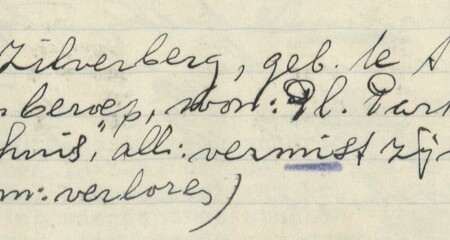 Zilverberg, geb. te
beroep, won: Pl.
huis", all: vermist zijn
m: verloren)